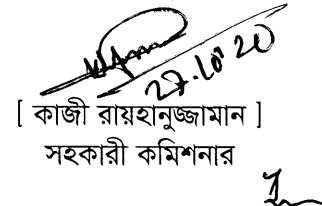 27.10.20
[ কাজী রায়হানুজ্জামান ]
সহকারী কমিশনার